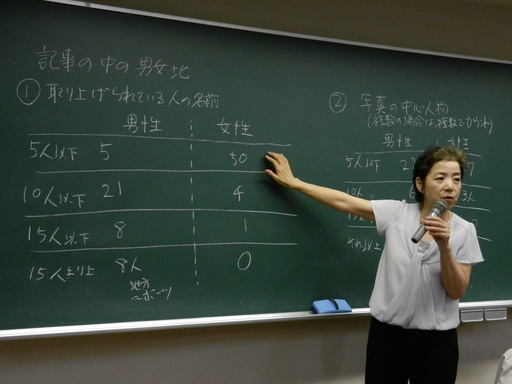 記事の中の男女比
① 取り上げられている人の名前
男性 女性
5人以下 5 50
10人以下 21 4
15人以下 8 1
15人より上 8人 0
地方
スポーツ
② 写真の中心人物
(複数の場合は複数でかうんt)
男性 女性
5人以下 2 7
10人
それ以上